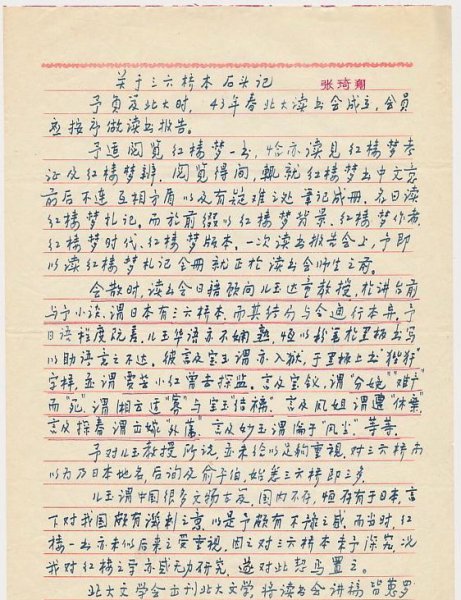 关于三六桥本石头记 张琦翔
予负笈北大时，43年春北大读书会成立，会员
应按月做读书报告。
予适阅览红楼梦一书，恰亦读见红楼梦考
证及红楼梦辨，阅览得间，辄就红楼梦书中文意
前后不连互相矛盾以及有疑难之处笔记成册，名曰读
红楼梦札记。而于前缀以红楼梦背景、红楼梦作者、
红楼梦时代、红楼梦版本。一次读书报告会上，予即
以读红楼梦札记全册就正于读书会师生之前。
会散时，读书会日语顾问儿玉达童教授，于讲台前
与予小谈，谓日本有三六桥本，而其结局与今通行本异，予
日语程度既差，儿玉华语亦不娴熟，恒以粉笔于黑板书写
以助语言之不达。彼言及宝玉谓亦入狱，于黑板上书“狴犴”
字样，并谓雪芸小红曾去探监。言及宝钗，谓“分娩”“难产”
而“死”，谓湘云迳“寡”与宝玉“结褵”。言及凤姐谓遭“休弃”，
言及探春谓亦嫁“外藩”，言及妙玉谓“沦于”“风尘”，等等。
予对儿玉教授所说，并未给以足够重视，对三六桥尚
以为乃日本地名，后询及俞平伯，始悉三六桥即三多。
儿玉谓中国很多文物古籍，国内不存，恒存有于日本，言
下对我国颇有渐刺之意，以是予颇有不豫之感，而当时，红
楼一书亦未如后来之受重视，因之对三六桥本未予深究，况
我对红楼之学亦感无力研究，遂对此恝焉置之。
北大文学会主刊北大文学，将读书会讲稿皆蒐罗